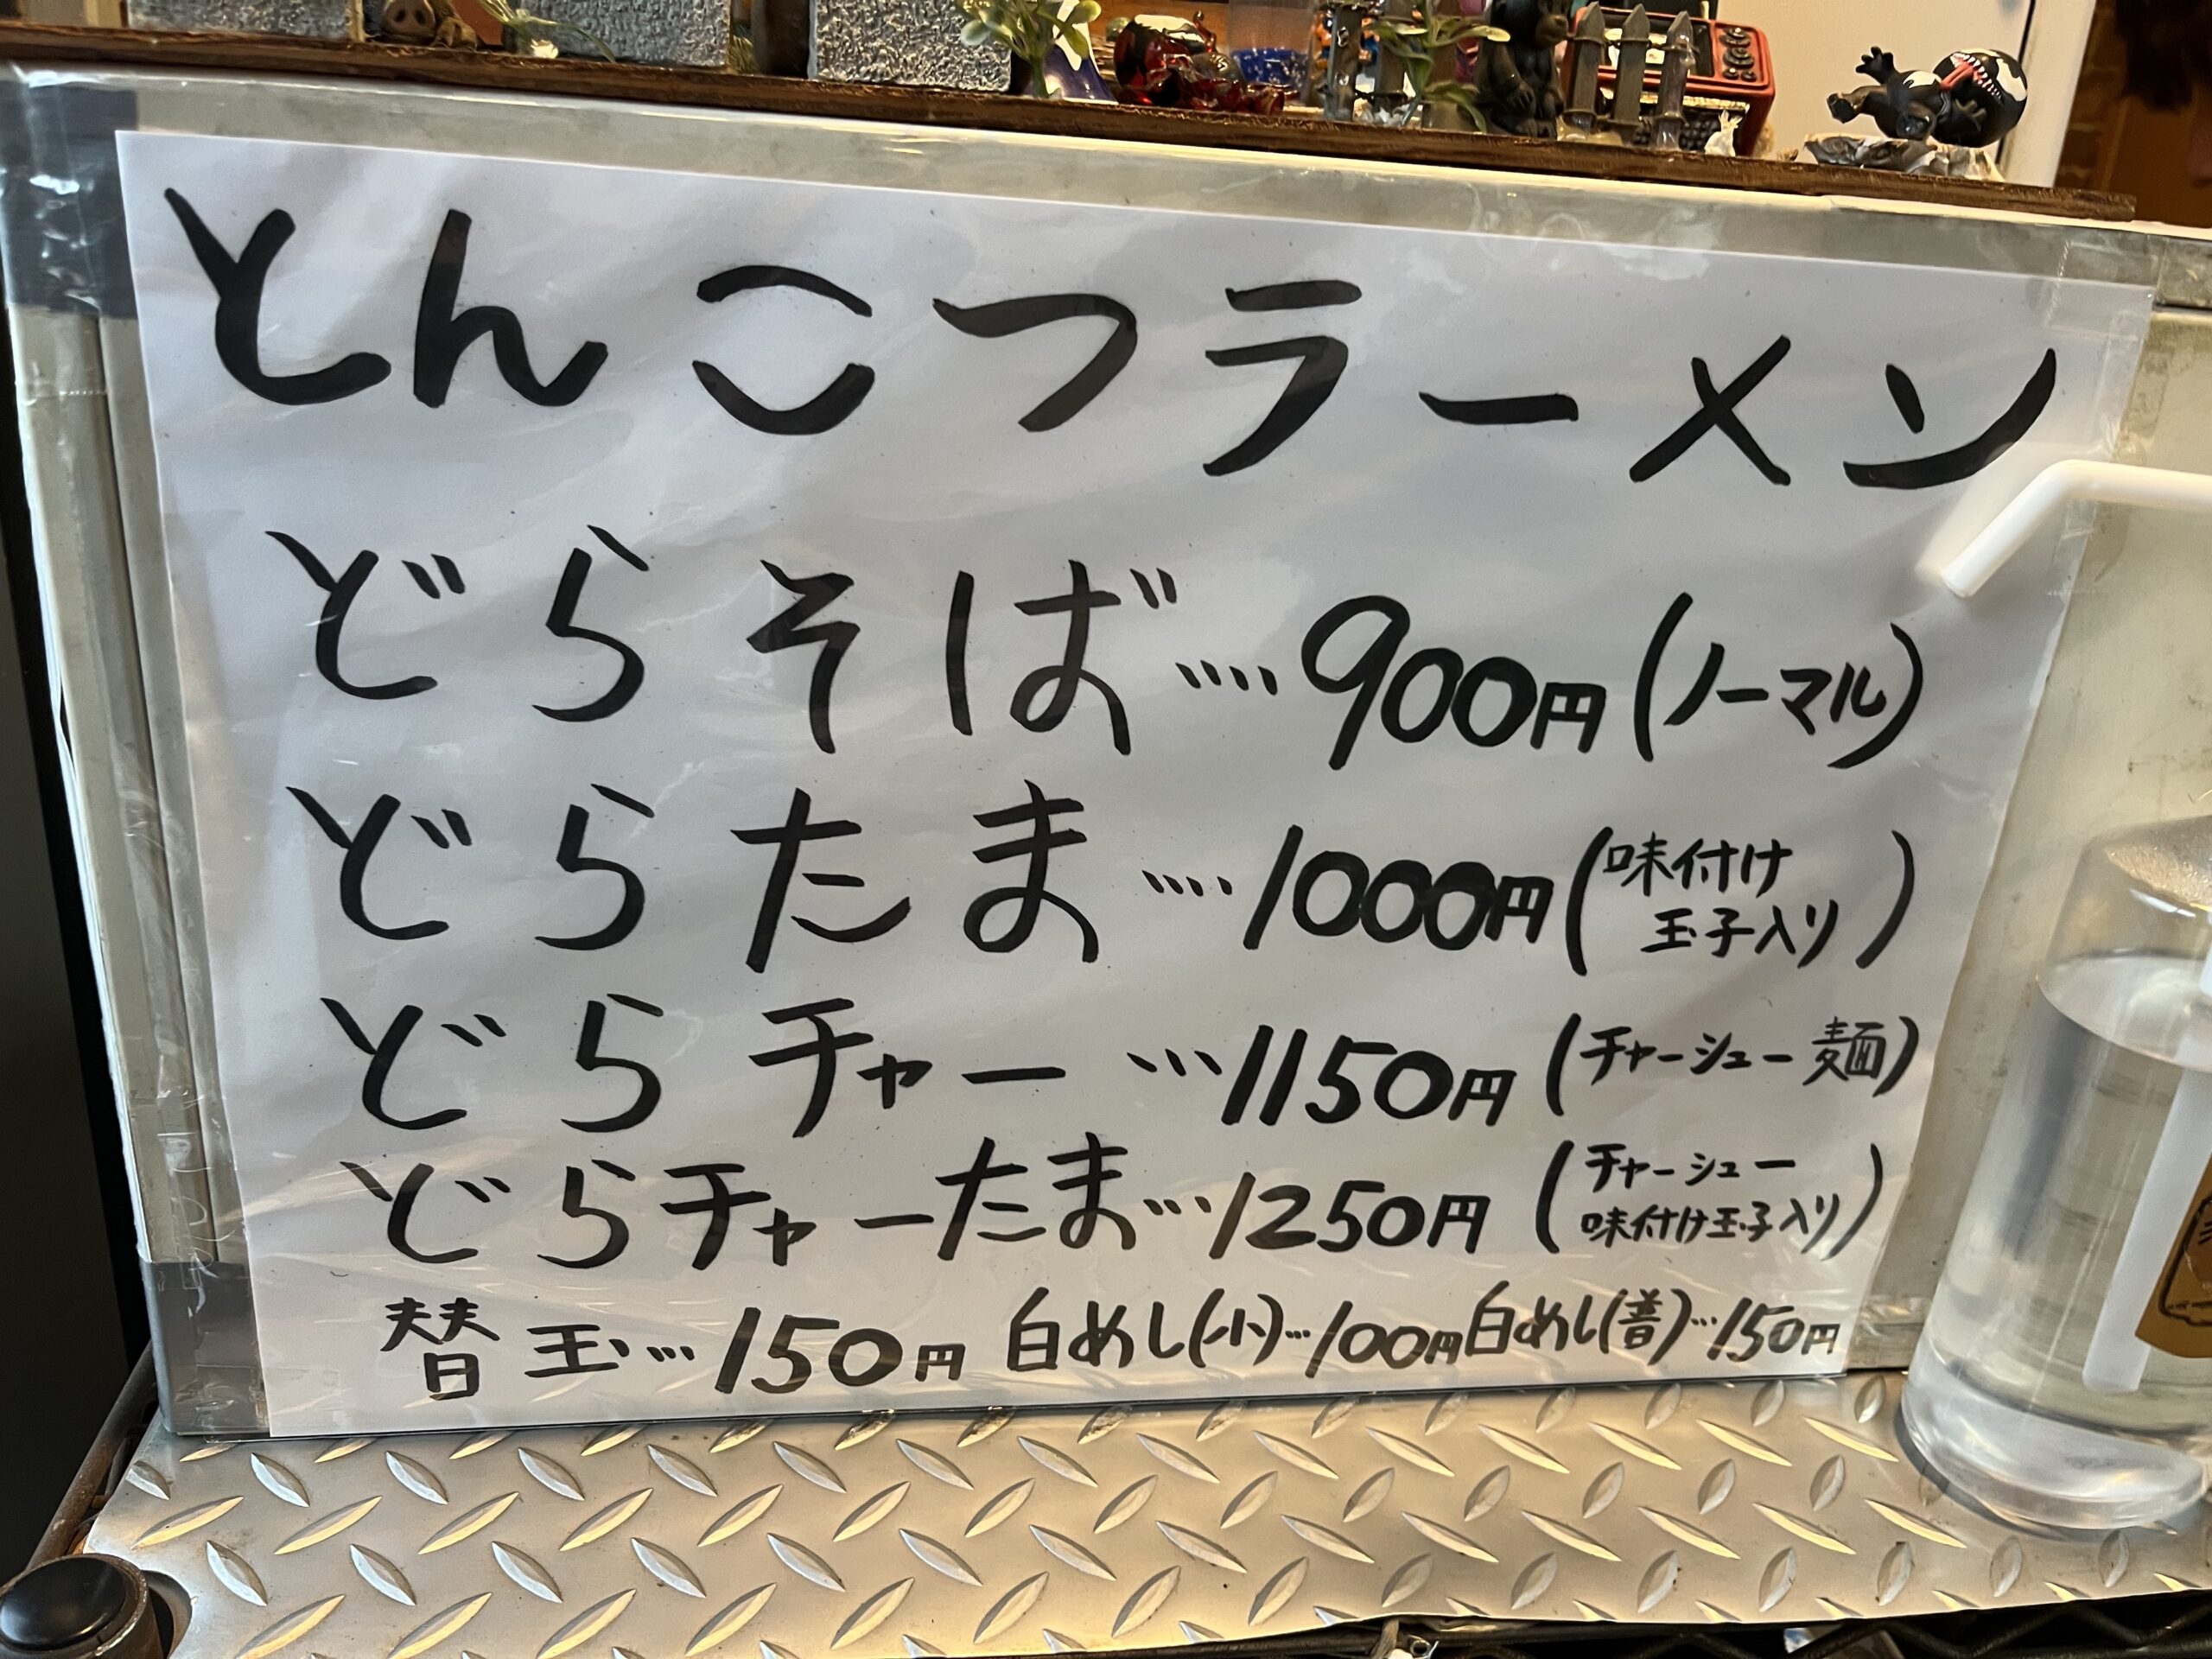 とんこつラーメン
どらそば‥‥900円(ノーマル)
どらたま‥‥1000円(味付け
玉子入り)
どらチャー…1150円(チャーシュー麺)
どらチャーたま…1250円(チャーシュー
味付け玉子入り)
替玉…150円 白めし(小)…100円 白めし(普)…150円